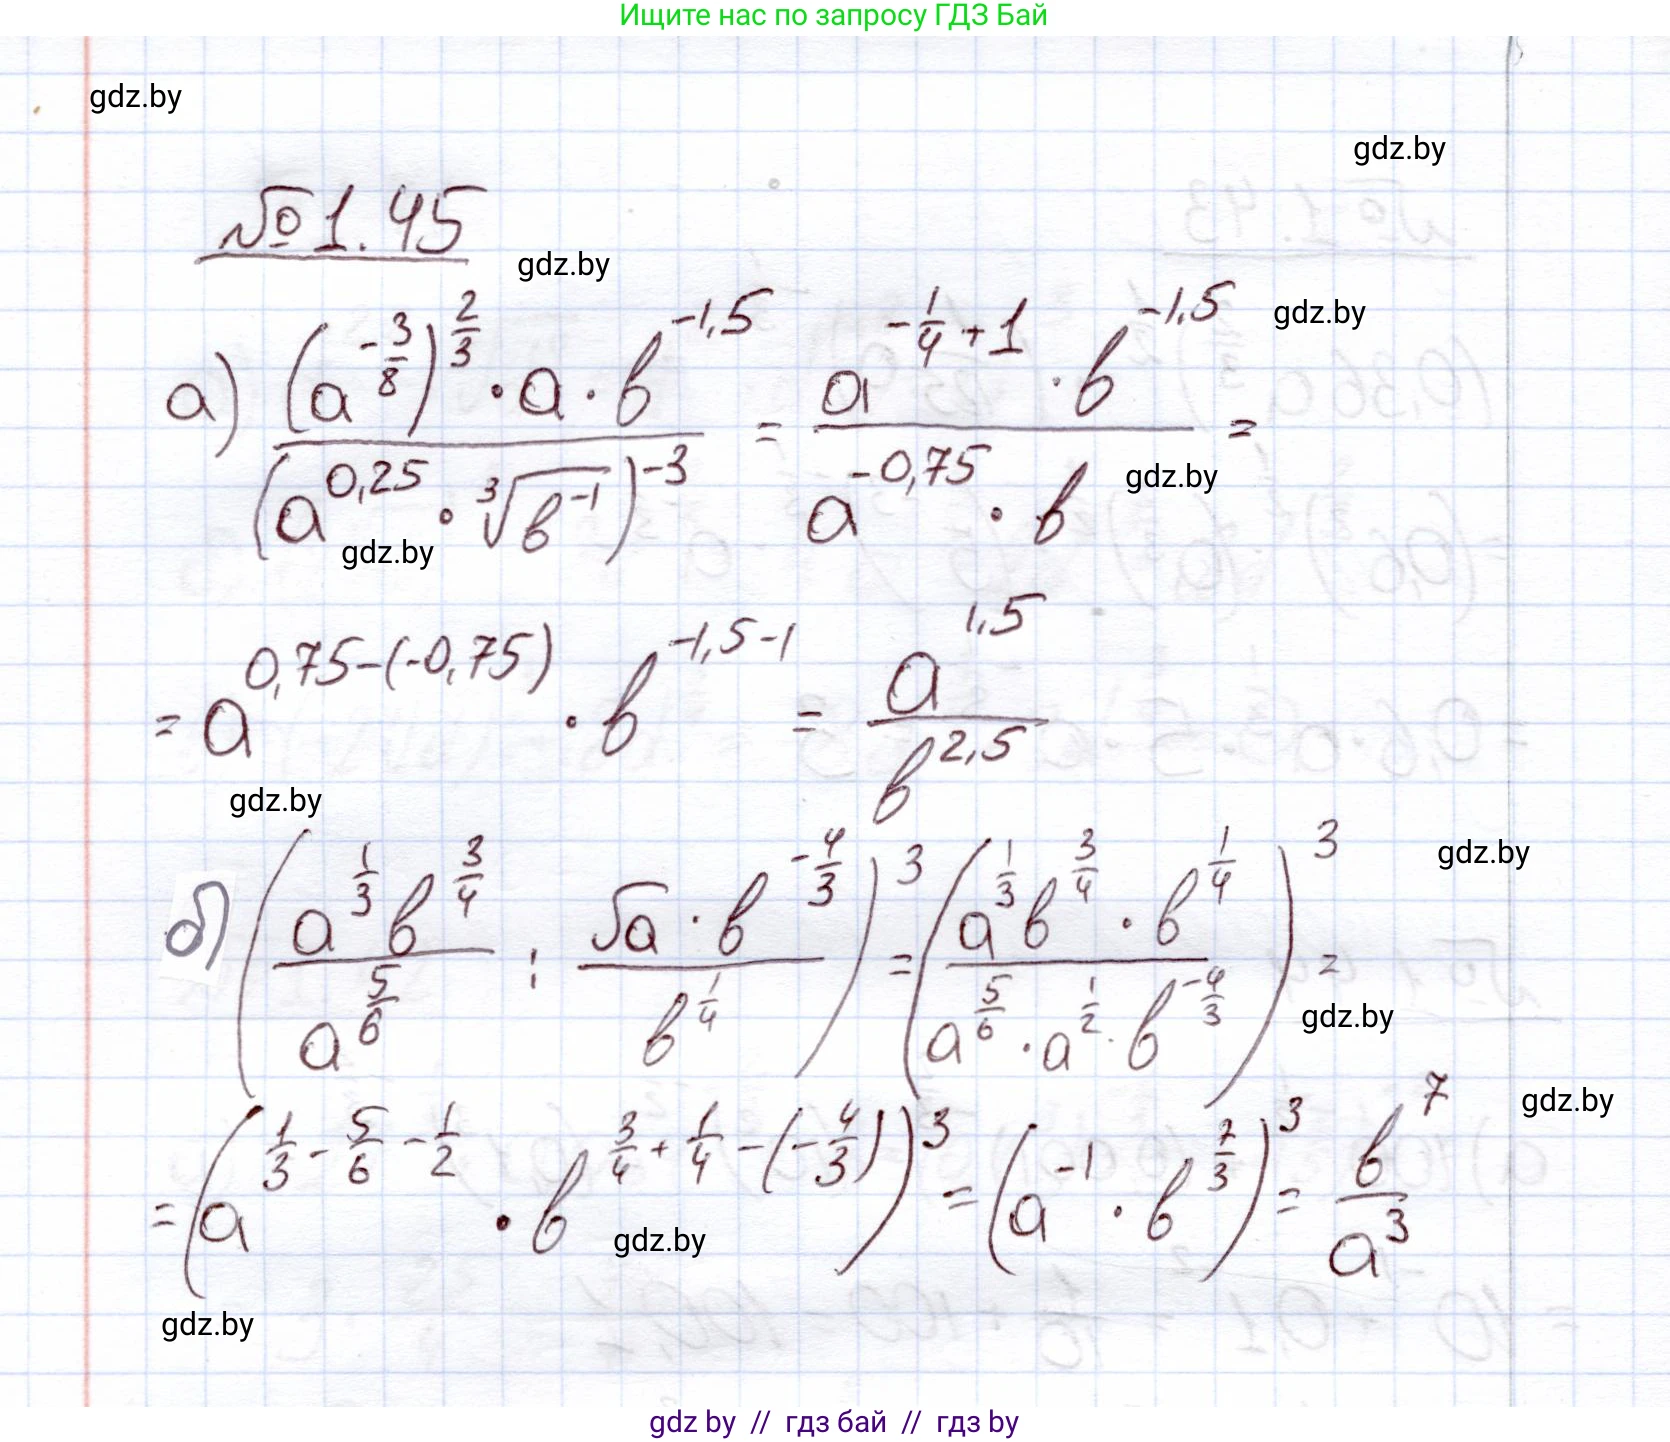 Ищите нас по запросу ГДЗ Бай
gdz.by
gdz.by
№ 1.45
gdz.by
gdz.by
а) ((a^(-3/8))^(2/3) · a · b^(-1,5)) / (a^(0,25) · ∛(b^(-1)))^(-3) = (a^(-1/4+1) · b^(-1,5)) / (a^(-0,75) · b) =
gdz.by
gdz.by
= a^(0,75-(-0,75)) · b^(-1,5-1) = a^(1,5) / b^(2,5)
gdz.by
gdz.by
б) ((a^(1/3) b^(3/4)) / a^(5/6) : (√a · b^(-4/3)) / b^(1/4))^3 = ((a^(1/3) b^(3/4) · b^(1/4)) / (a^(5/6) · a^(1/2) · b^(-4/3)))^3 =
gdz.by
gdz.by
= (a^(1/3 - 5/6 - 1/2) · b^(3/4 + 1/4 - (-4/3)))^3 = (a^(-1) · b^(7/3))^3 = b^7 / a^3
gdz.by
gdz.by
gdz by // гдз бай // гдз by